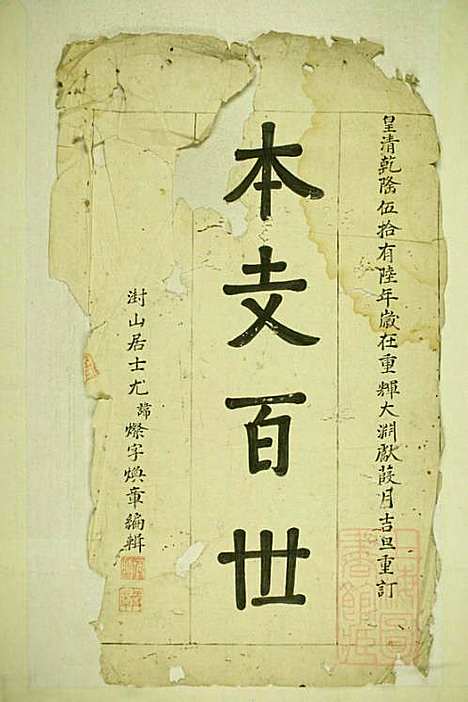 皇清乾隆伍拾有陸年歲在重輝大淵獻葭月吉旦重訂
本支百世
澍山居士尤諦燦字煥章編輯